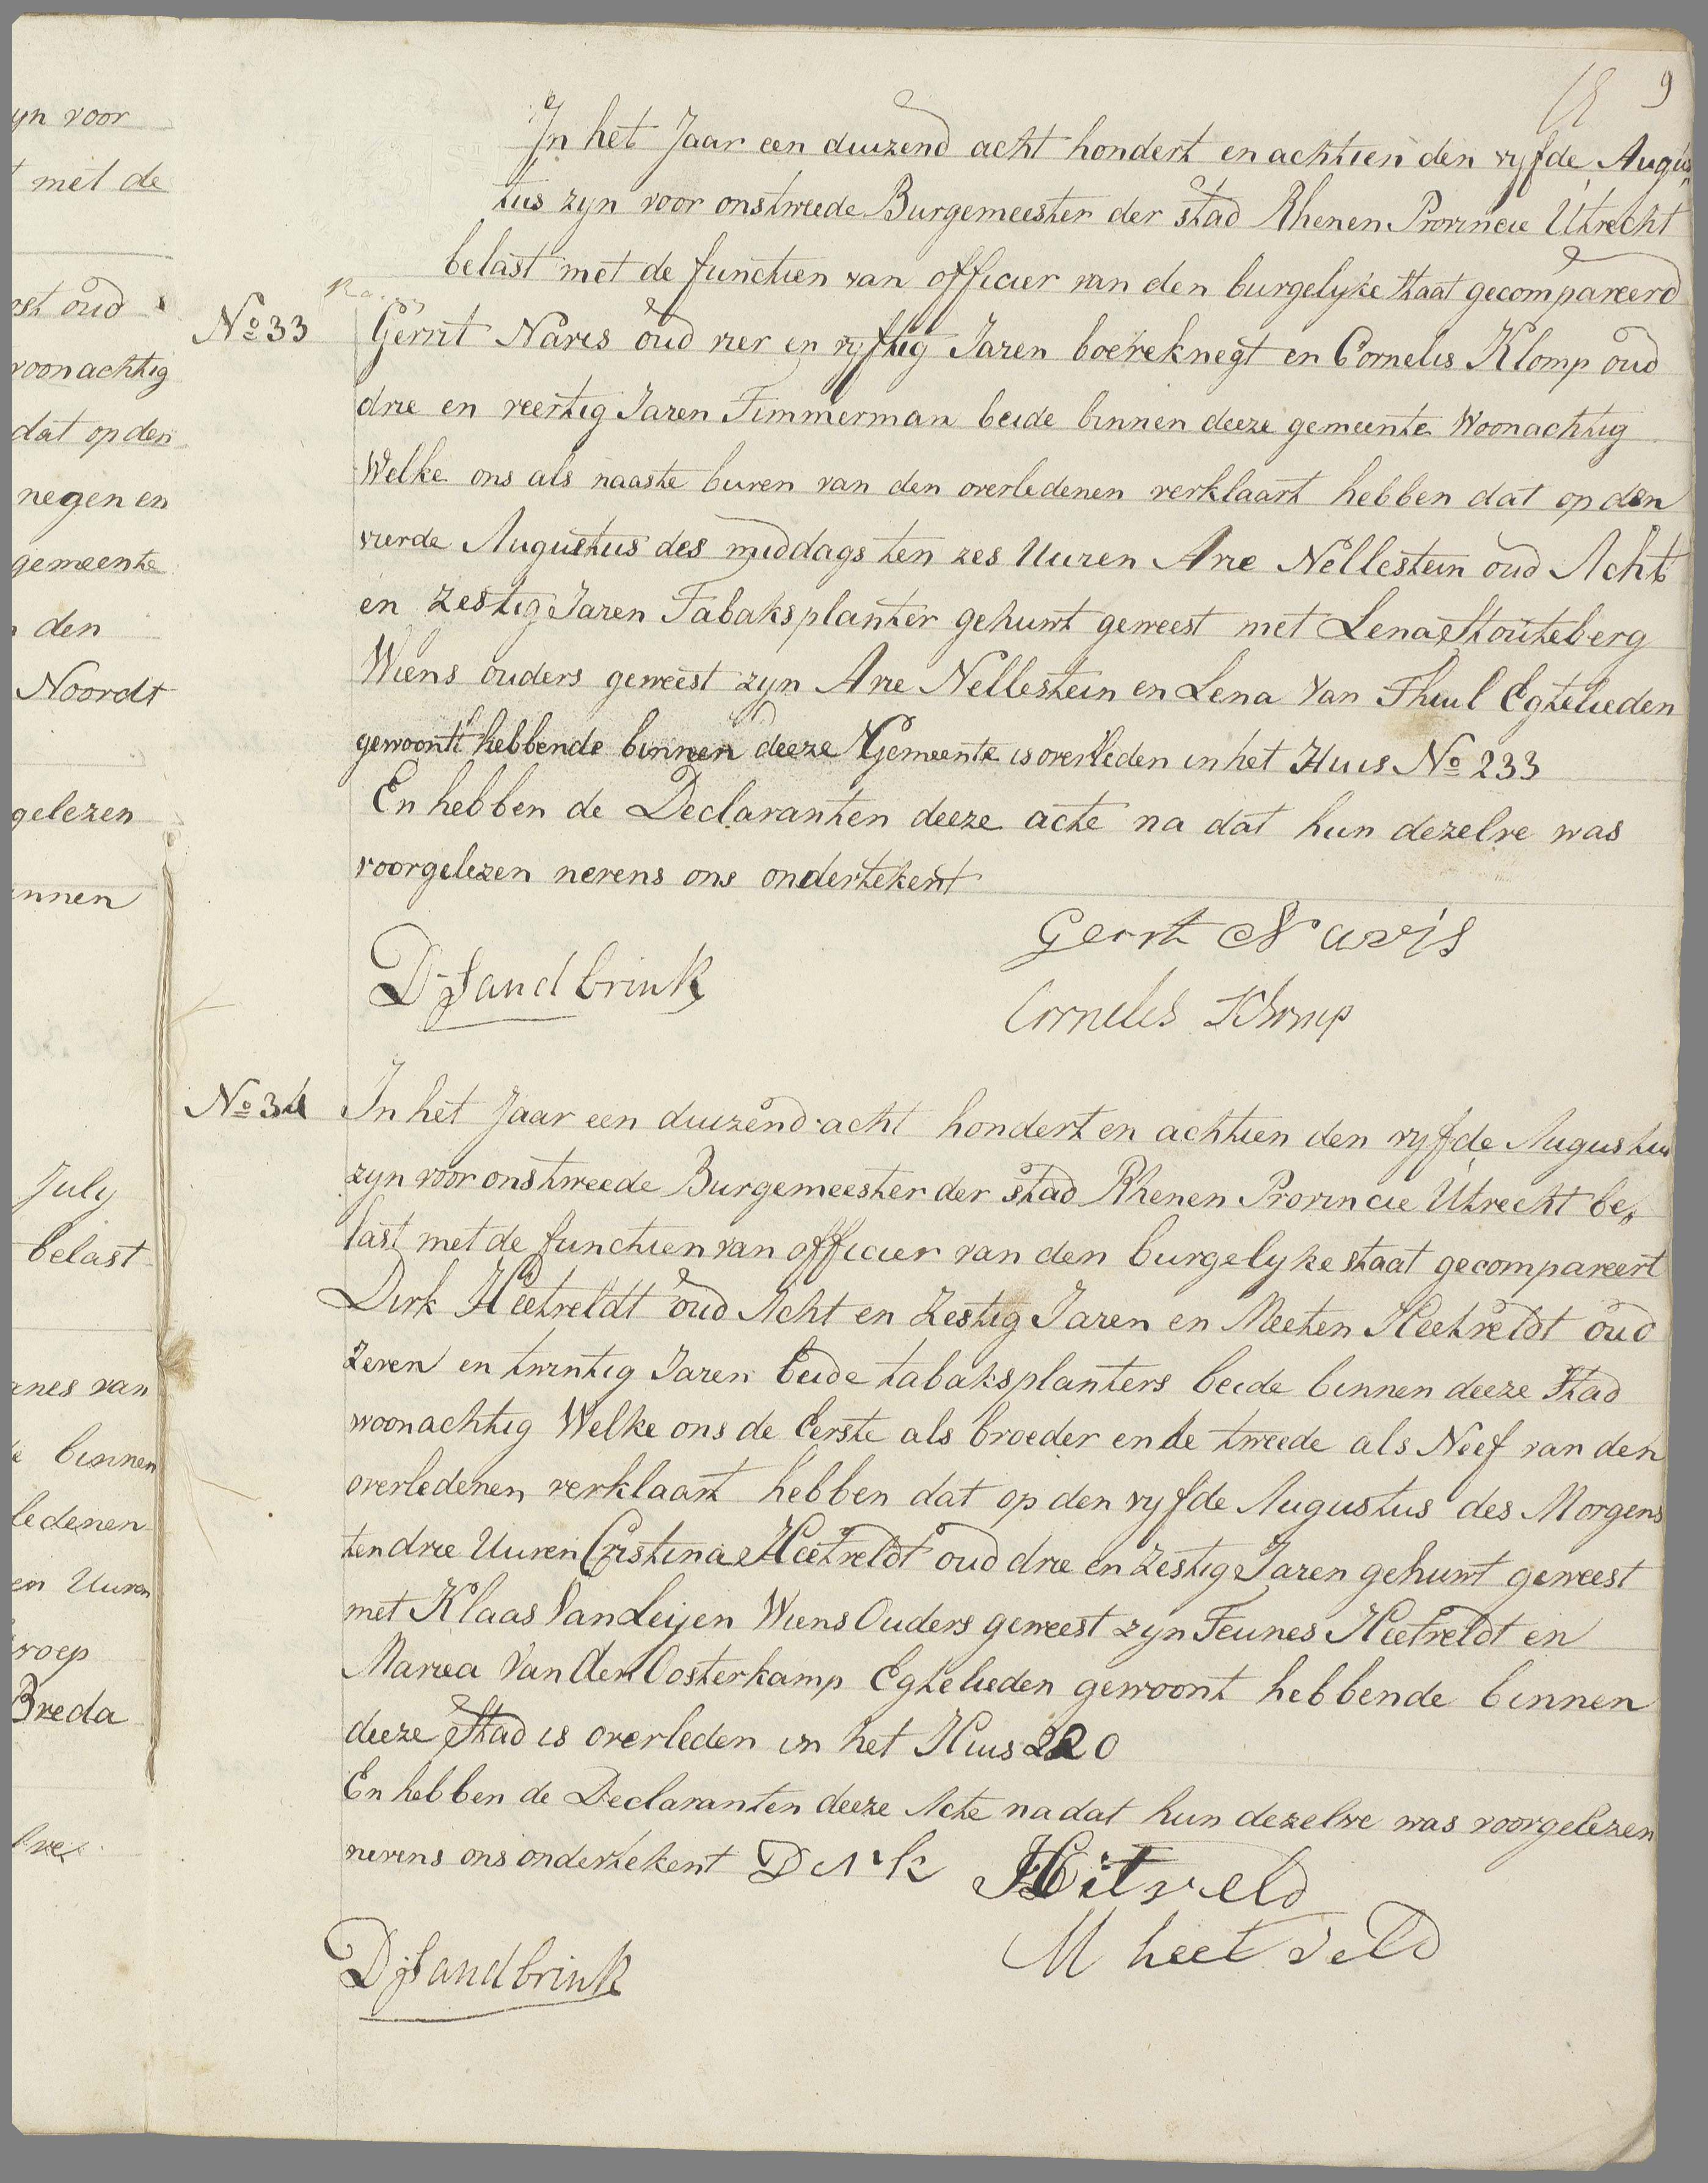 9
In het Jaar een duizend acht hondert en achtien den vyfde Augus
tus zyn voor ons tweede Burgemeester der stad Rhenen Provincie Utrecht
belast met de functien van officier van den burgelyke staat gecompareerd
No 33
Gerrit Naves oud vier en vyftig Jaren boereknegt en Cornelis Klomp oud
drie en veertig Jaren Timmerman beide binnen deeze gemeente Woonachtig
Welke ons als naaste buren van den overledenen verklaart hebben dat op den
vierde Augustus des middags ten zes Uuren Arie Nellestein oud Acht
en Zestig Jaren Tabaksplanter gehuwt geweest met Lena Stouteberg
Wiens ouders geweest zyn Arie Nellestein en Lena Van Thiul Egtelieden
gewoont hebbende binnen deeze Gemeente is overleden in het Huis No 233
En hebben de Declaranten deeze acte na dat hun dezelve was
voorgelezen nevens ons ondertekent
Gerrit Navis
D. Sandbrink
Cornelis Klomp
No 34
In het Jaar een duizend acht hondert en achtien den vyfde Augustus
zyn voor ons tweede Burgemeester der stad Rhenen Provincie Utrecht be,
last met de functien van officier van den burgelyke staat gecompareert
Dirk Heetveldt oud Acht en Zestig Jaren en Meeten Heetveldt oud
Zeven en twintig Jaren beide tabaksplanters beide binnen deeze Stad
woonachtig Welke ons de Eerste als broeder en de tweede als Neef van den
overledenen verklaart hebben dat op den vyfde Augustus des Morgens
ten drie Uuren Cristina Heetveldt oud drie en Zestig Jaren gehuwt geweest
met Klaas Van Leijen Wiens Ouders geweest zyn Teunes Heetveldt en
Maria Van den Oosterkamp Egtelieden gewoont hebbende binnen
deeze Stad is overleden in het Huis 220
En hebben de Declaranten deeze Acte na dat hun dezelve was voorgelezen
nevens ons ondertekent Dirk Hitveld
M heetveld
D. Sandbrink
yn voor
met de
oud
woonachtig
dat op den
negen en
gemeente
den
Noordt
gelezen
innen
July
belast
anes van
binnen
ledenen
Uuren
roep
Breda